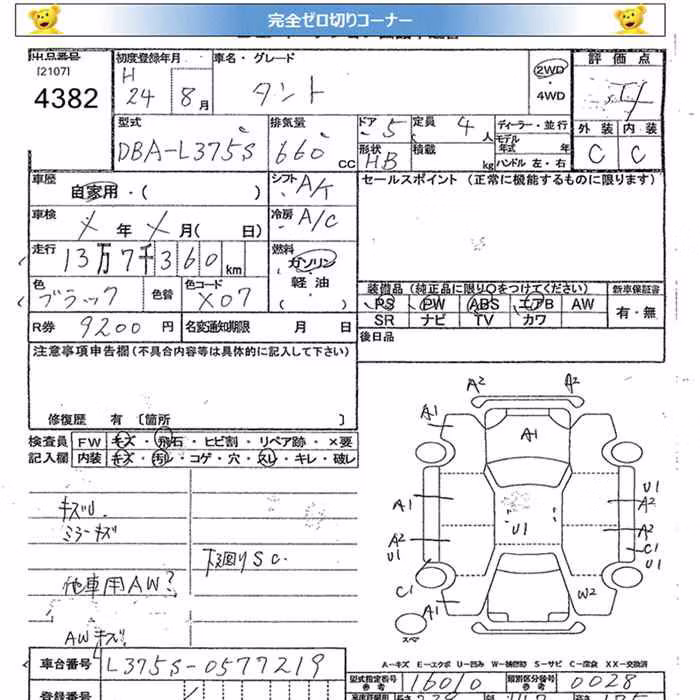 完全ゼロ切りコーナー
出品番号
[2107]
4382
初度登録年月
H
24 8月
車名・グレード
タント
2WD
・
4WD
評価点
外装 内装
C C
型式
DBA-L375S
排気量
660 cc
ドア 5
形状
HB
定員 4 人
積載 kg
ディーラー・並行
モデル年式 年
ハンドル 左・右
車歴
自家用・( )
シフト A/K
車検
X年 X月( 日)
冷房 A/C
走行
13万7千360km
燃料
ガソリン
軽油
( )
色
ブラック
色替
色コード
X07
R券 9200円
名変通知期限 月 日
セールスポイント (正常に機能するものに限ります)
装備品 (純正品に限り○をつけてください)
PS PW ABS エアB AW
SR ナビ TV カワ
新車保証書
有・無
後日品
注意事項申告欄(不具合内容等は具体的に記入して下さい)
修復歴 有 〔箇所 〕
検査員
記入欄
FW キズ・飛石・ヒビ割・リペア跡・×要
内装 キズ・汚レ・コゲ・穴・スレ・キレ・破レ
キズU.
ミラーキズ
下廻りSC.
他車用AW?
AWキズ
A2 A2
A1
A1
U1
A2
A1
U1
A2
A2
U1
C1
U1
C1
A1
W2
スペア
A-キズ E-エクボ U-凹み W-補修跡 S-サビ C-腐食 XX-交換済
車台番号
L375S-0577219
型式指定番号
参考
16010
類別区分番号
参考
0028
登録番号